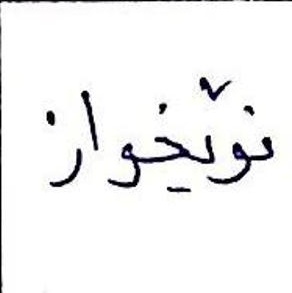 نوێخواز